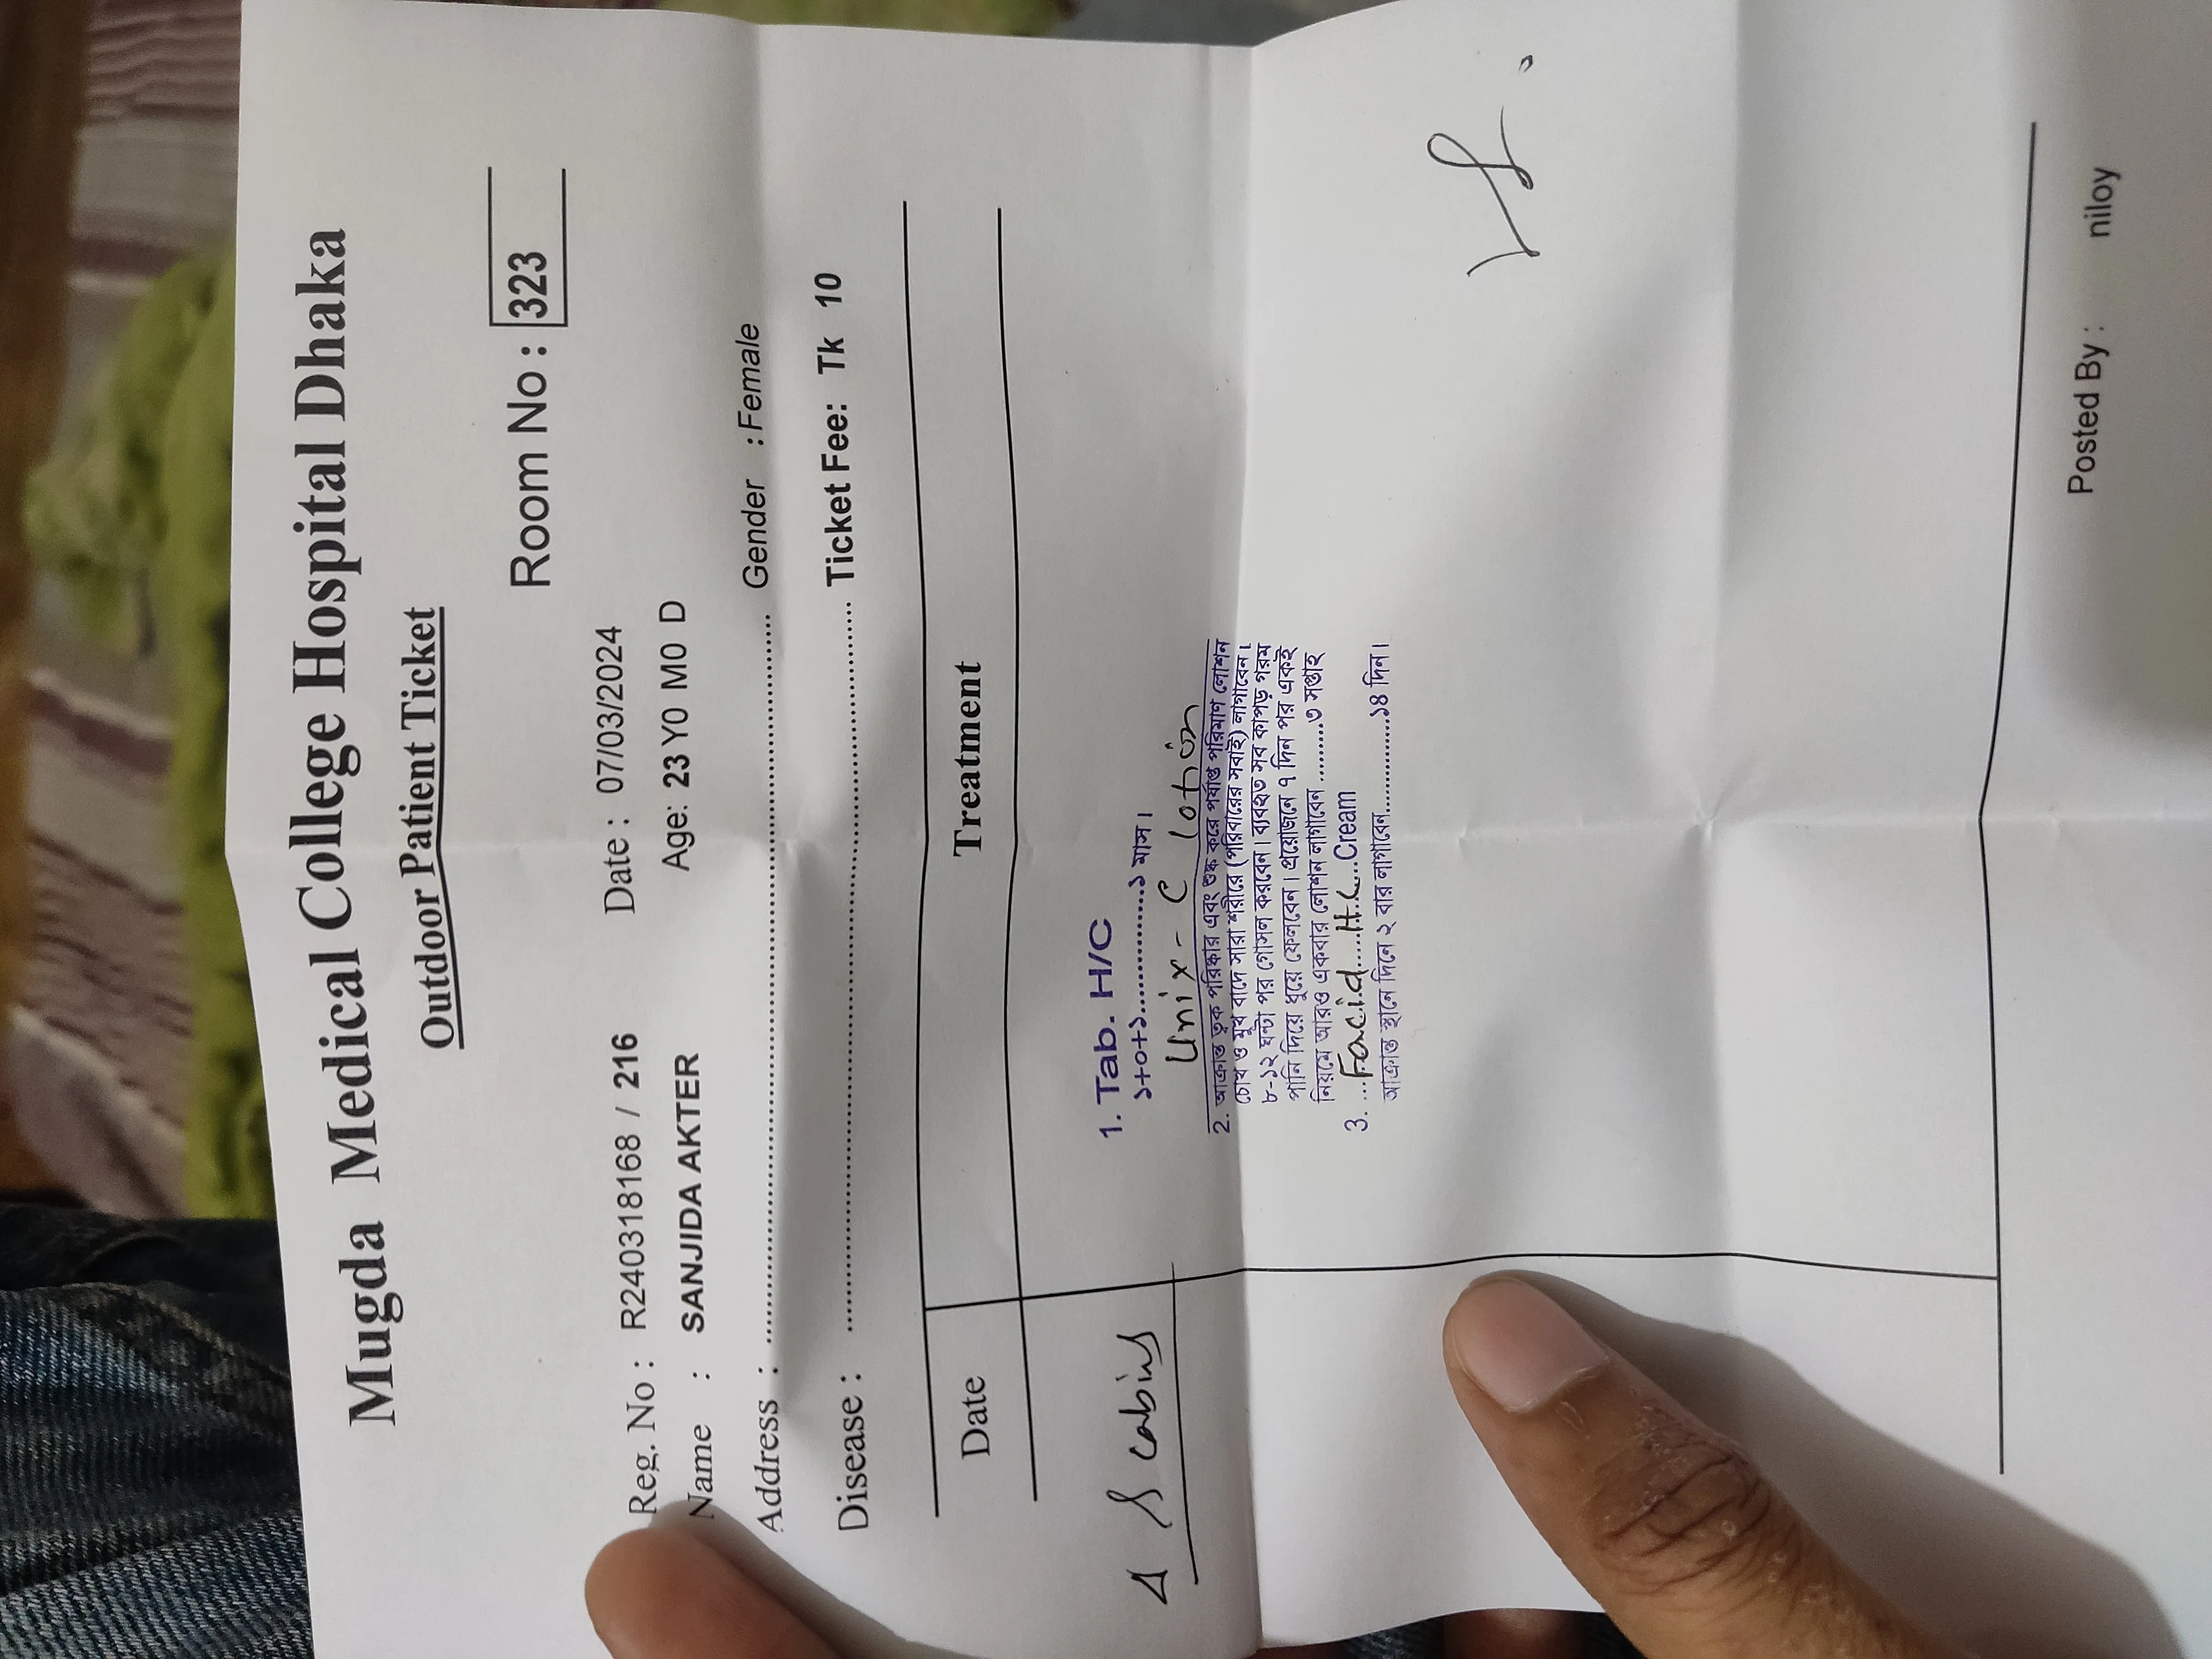 Mugda Medical College Hospital Dhaka
Outdoor Patient Ticket
Room No : 323
Reg. No : R240318168 / 216 Date : 07/03/2024
Name : SANJIDA AKTER Age: 23 Y0 M0 D
Address : ........................ Gender : Female
Disease : ........................ Ticket Fee: Tk 10
Date Treatment
Δ Scabies
1. Tab. H/C
১+০+১...............১ মাস।
Unix - C lotion
2. আক্রান্ত ত্বক পরিষ্কার এবং শুষ্ক করে পর্যাপ্ত পরিমাণ লোশন
চোখ ও মুখ বাদে সারা শরীরে (পরিবারের সবাই) লাগাবেন।
৮-১২ ঘন্টা পর গোসল করবেন। ব্যবহৃত সব কাপড় গরম
পানি দিয়ে ধুয়ে ফেলবেন। প্রয়োজনে ৭ দিন পর একই
নিয়মে আরও একবার লোশন লাগাবেন .........৩ সপ্তাহ
3. ...Facid....H.C....Cream
আক্রান্ত স্থানে দিনে ২ বার লাগাবেন..............১৪ দিন।
Posted By : niloy